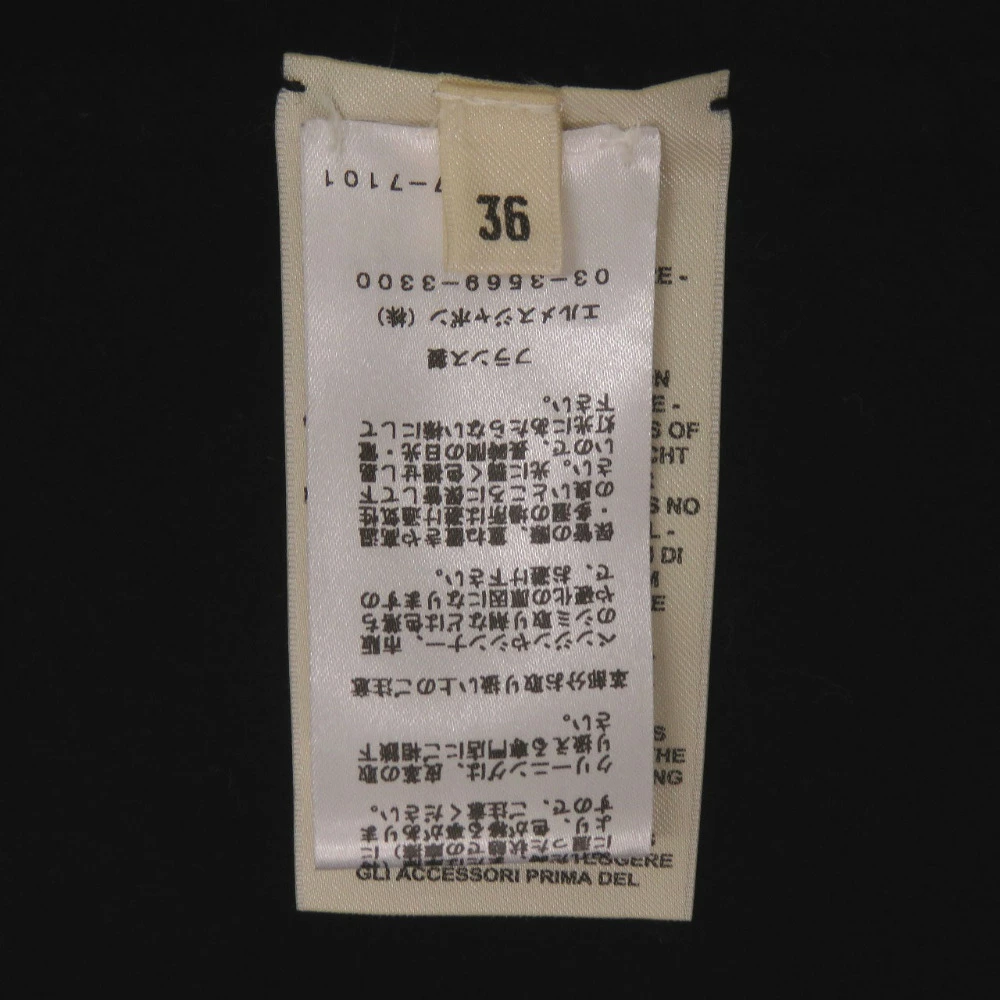 36
より、色が移る事がありま
すので、ご注意ください。
クリーニングは、皮革の取
り扱える専門店にご相談下
さい。
革部分お取り扱い上のご注意
ベンジンやシンナー、市販
のシミ取り剤などは色落ち
や硬化の原因になりますの
で、お避け下さい。
保管の際、重ね置きや高温
・多湿の場所は避け通気性
の良いところに保管して下
さい。光に弱く色褪せし易
いので、長時間の日光・電
灯光にあたらない様にして
下さい。
フランス製
エルメスジャポン (株)
03-3569-3300
7-7101
S OF
S NO
DI
GLI ACCESSORI PRIMA DEL